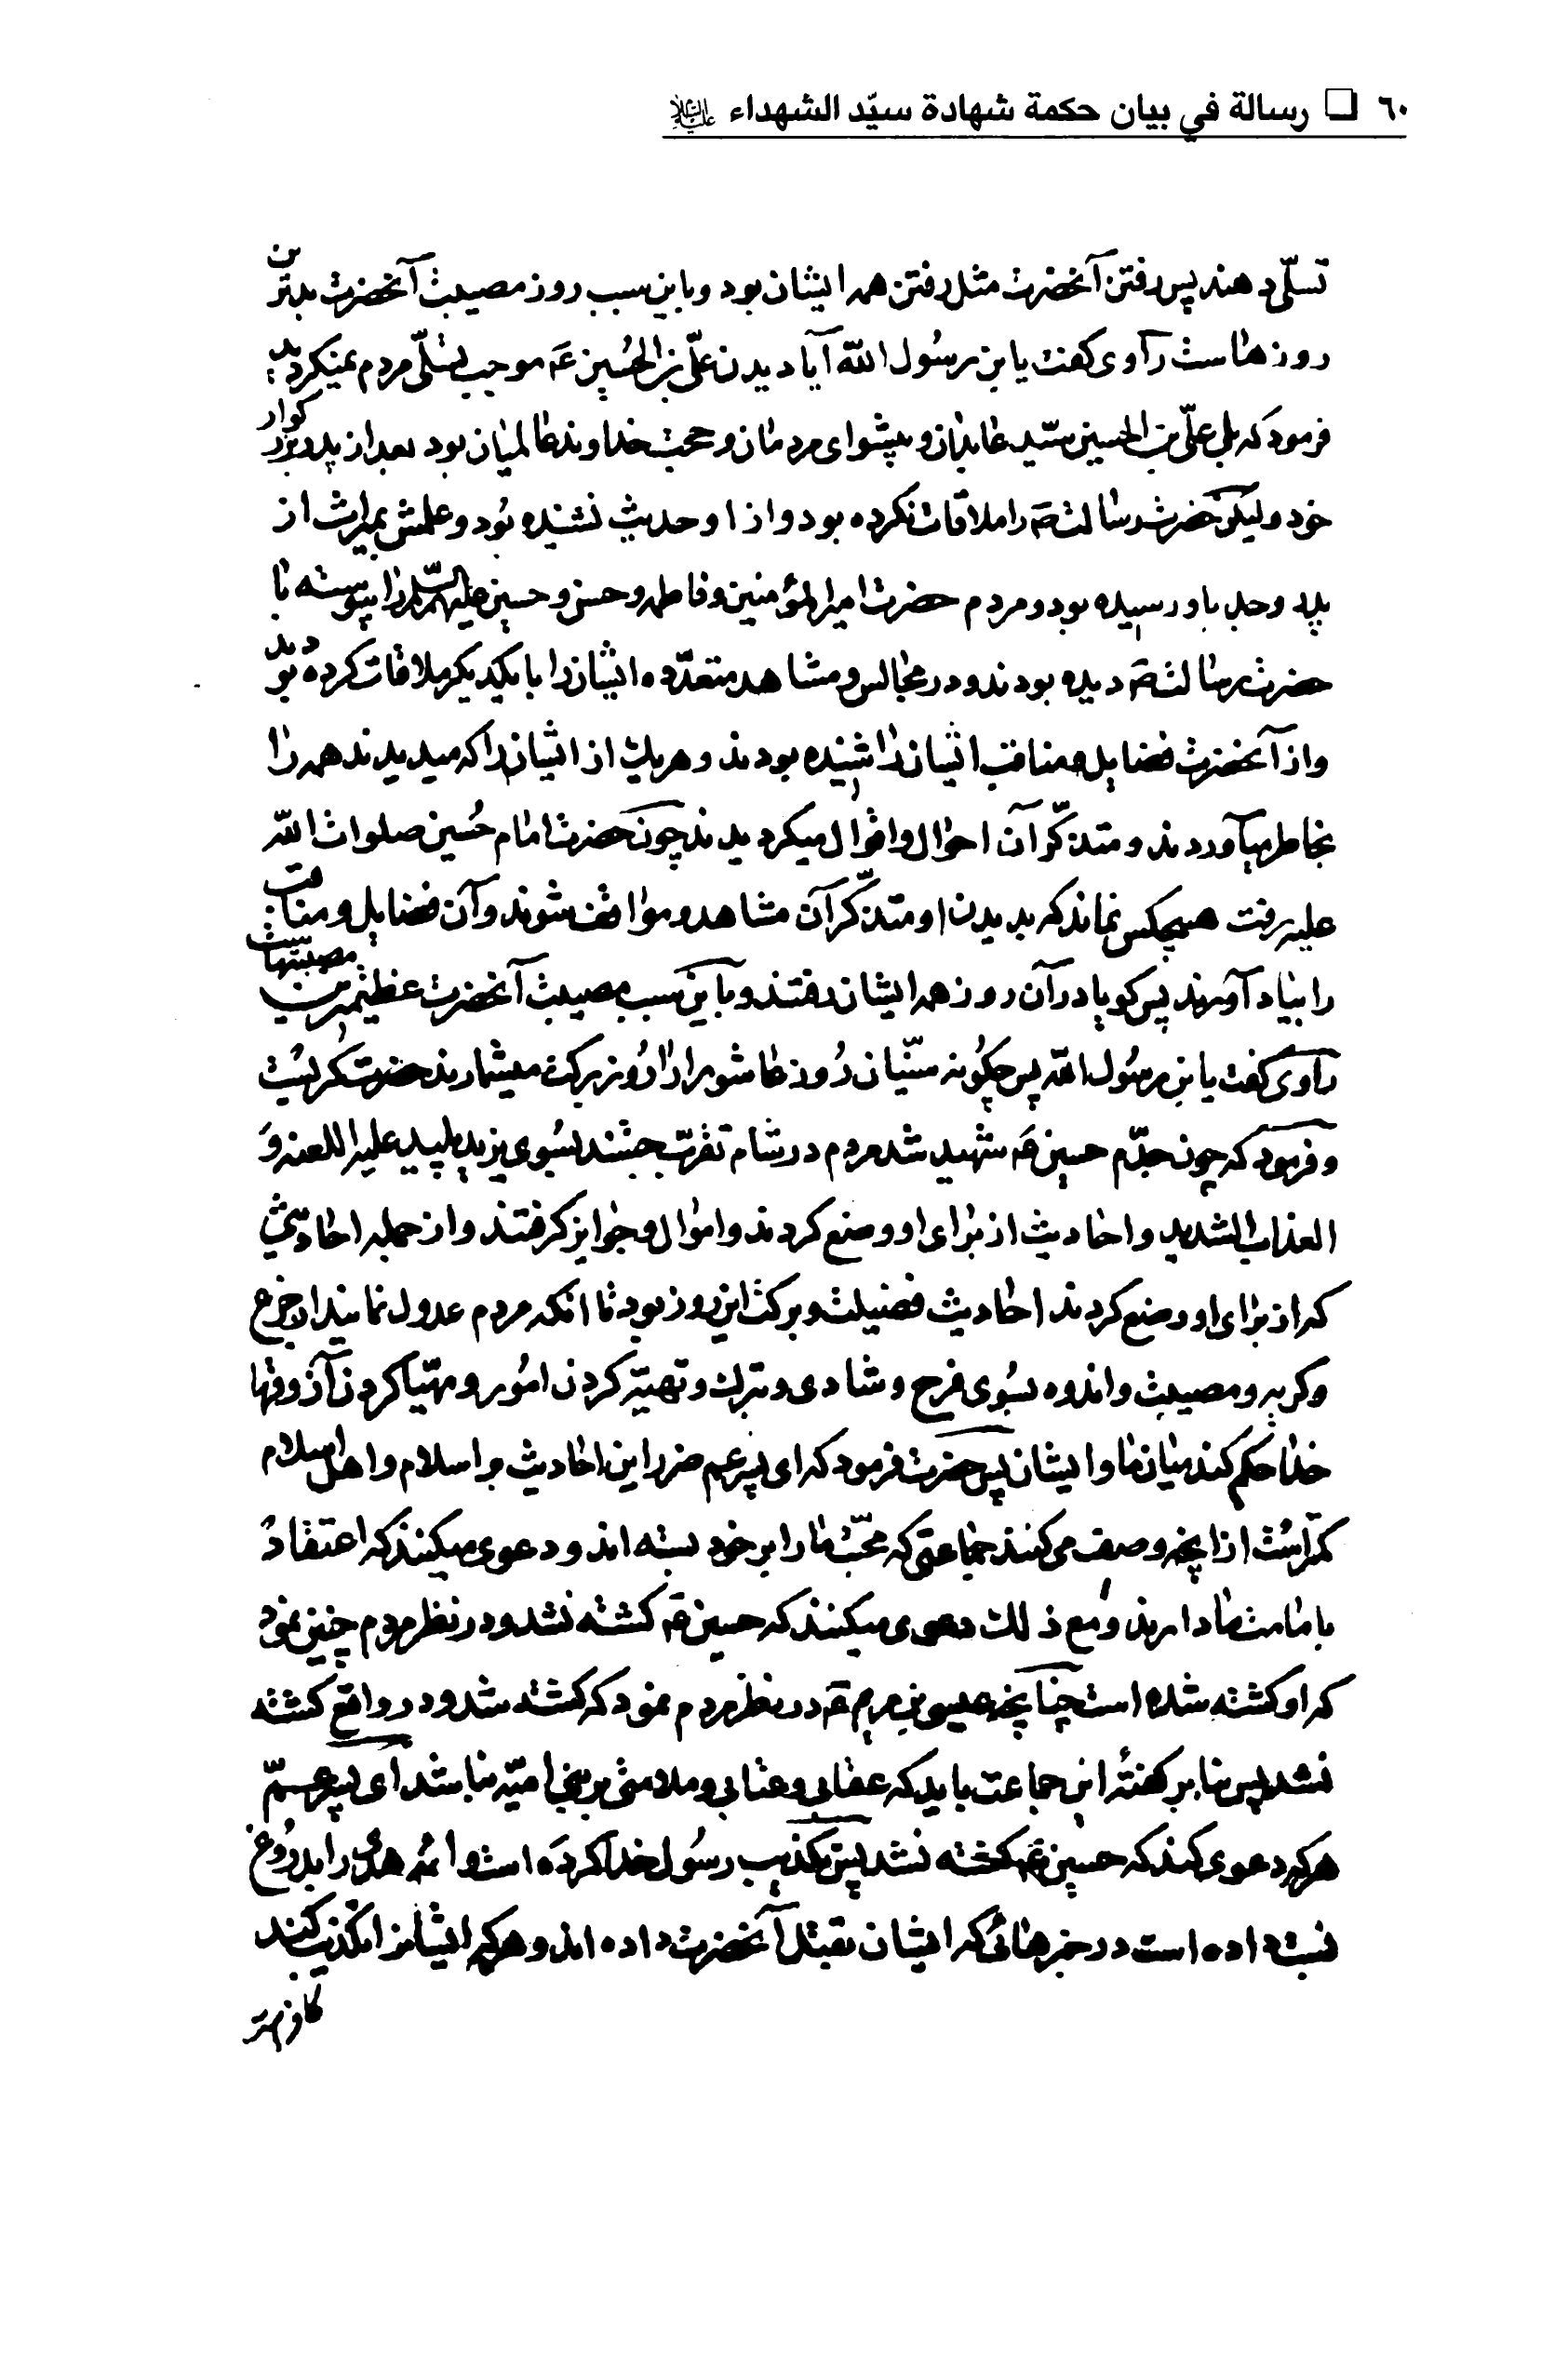 ٦٠ □ رسالة في بيان حكمة شهادة سيّد الشهداء عليه السلام
تسلّی دهند پس رفتن آنحضرت مثل رفتن همه ایشان بود و باین سبب روز مصیبت آنحضرت بدترین
روزهاست راوی گفت یابن رسول الله آیا دیدن علیّ بن الحسین ع موجب تسلّی مردم نمیگردید
فرمود که بلی علیّ بن الحسین سیّد عابدان و پیشوای مردمان و حجت خداوند عالمیان بود بعد از پدر بزرگوار
خود و لیکن حضرت رسالت ص را ملاقات نکرده بود و از او حدیث نشنیده بود و علمش بمیراث از
پدر و جد باو رسیده بود و مردم حضرت امیرالمؤمنین و فاطمه و حسن و حسین علیهم السلام را پیوسته با
حضرت رسالت ص دیده بودند و در مجالس و مشاهد متعدّده ایشان را با یکدیگر ملاقات کرده بودند
و از آنحضرت فضایل و مناقب ایشان را شنیده بودند و هر یک از ایشان را که میدیدند همه را
بخاطر میآوردند و متذکّر آن احوال و اقوال میگردیدند چون حضرت امام حسین صلوات الله
علیه رفت هیچکس نماند که بدیدن او متذکّر آن مشاهد و مواقف شوند و آن فضایل و مناقب
را بیاد آورند پس گویا در آن روز همه ایشان رفتند و باین سبب مصیبت آنحضرت عظیمترین مصیبتهاست
راوی گفت یابن رسول الله پس چگونه سنّیان روز عاشورا را روز برکت میشمارند حضرت گریست
و فرمود که چون جدّم حسین ع شهید شد مردم در شام تقرّب جستند بسوی یزید پلید علیه اللعنه و
العذاب الشدید و احادیث از برای او وضع کردند و اموال و جوایز گرفتند و از جمله احادیثی
که از برای او وضع کردند احادیث فضیلت و برکت این روز بود تا آنکه مردم عدول نمایند از جزع
و گریه و مصیبت و اندوه بسوی فرح و شادی و تبرک و تهیّه کردن امور و مهیّا کردن آذوقها
خدا حکم کند میان ما و ایشان پس حضرت فرمود که ای پسر عم ضرر این احادیث بر اسلام و اهل اسلام
کمتر است از آنچه وصف می کنند جماعتی که محبّت ما را بر خود بسته اند و دعوی میکنند که اعتقاد
بامامت ما دارند و مع ذلک دعوی میکنند که حسین ع کشته نشد و در نظر مردم چنین نمود
که او کشته شده است چنانچه عیسی بن مریم ع در نظر مردم نمود که کشته شد و در واقع کشته
نشد پس بنا بر گفتهٔ این جماعت باید که عقابی و عتابی و ملامتی بر بنی امیّه نباشد ای پسر عمّ
هر که دعوی کند که حسین ع کشته نشد پس تکذیب رسول خدا کرده است و ائمه هدی را بدروغ
نسبت داده است در خبرهائی که ایشان بقتل آنحضرت داده اند و هر که ایشان را تکذیب کند
کافر است